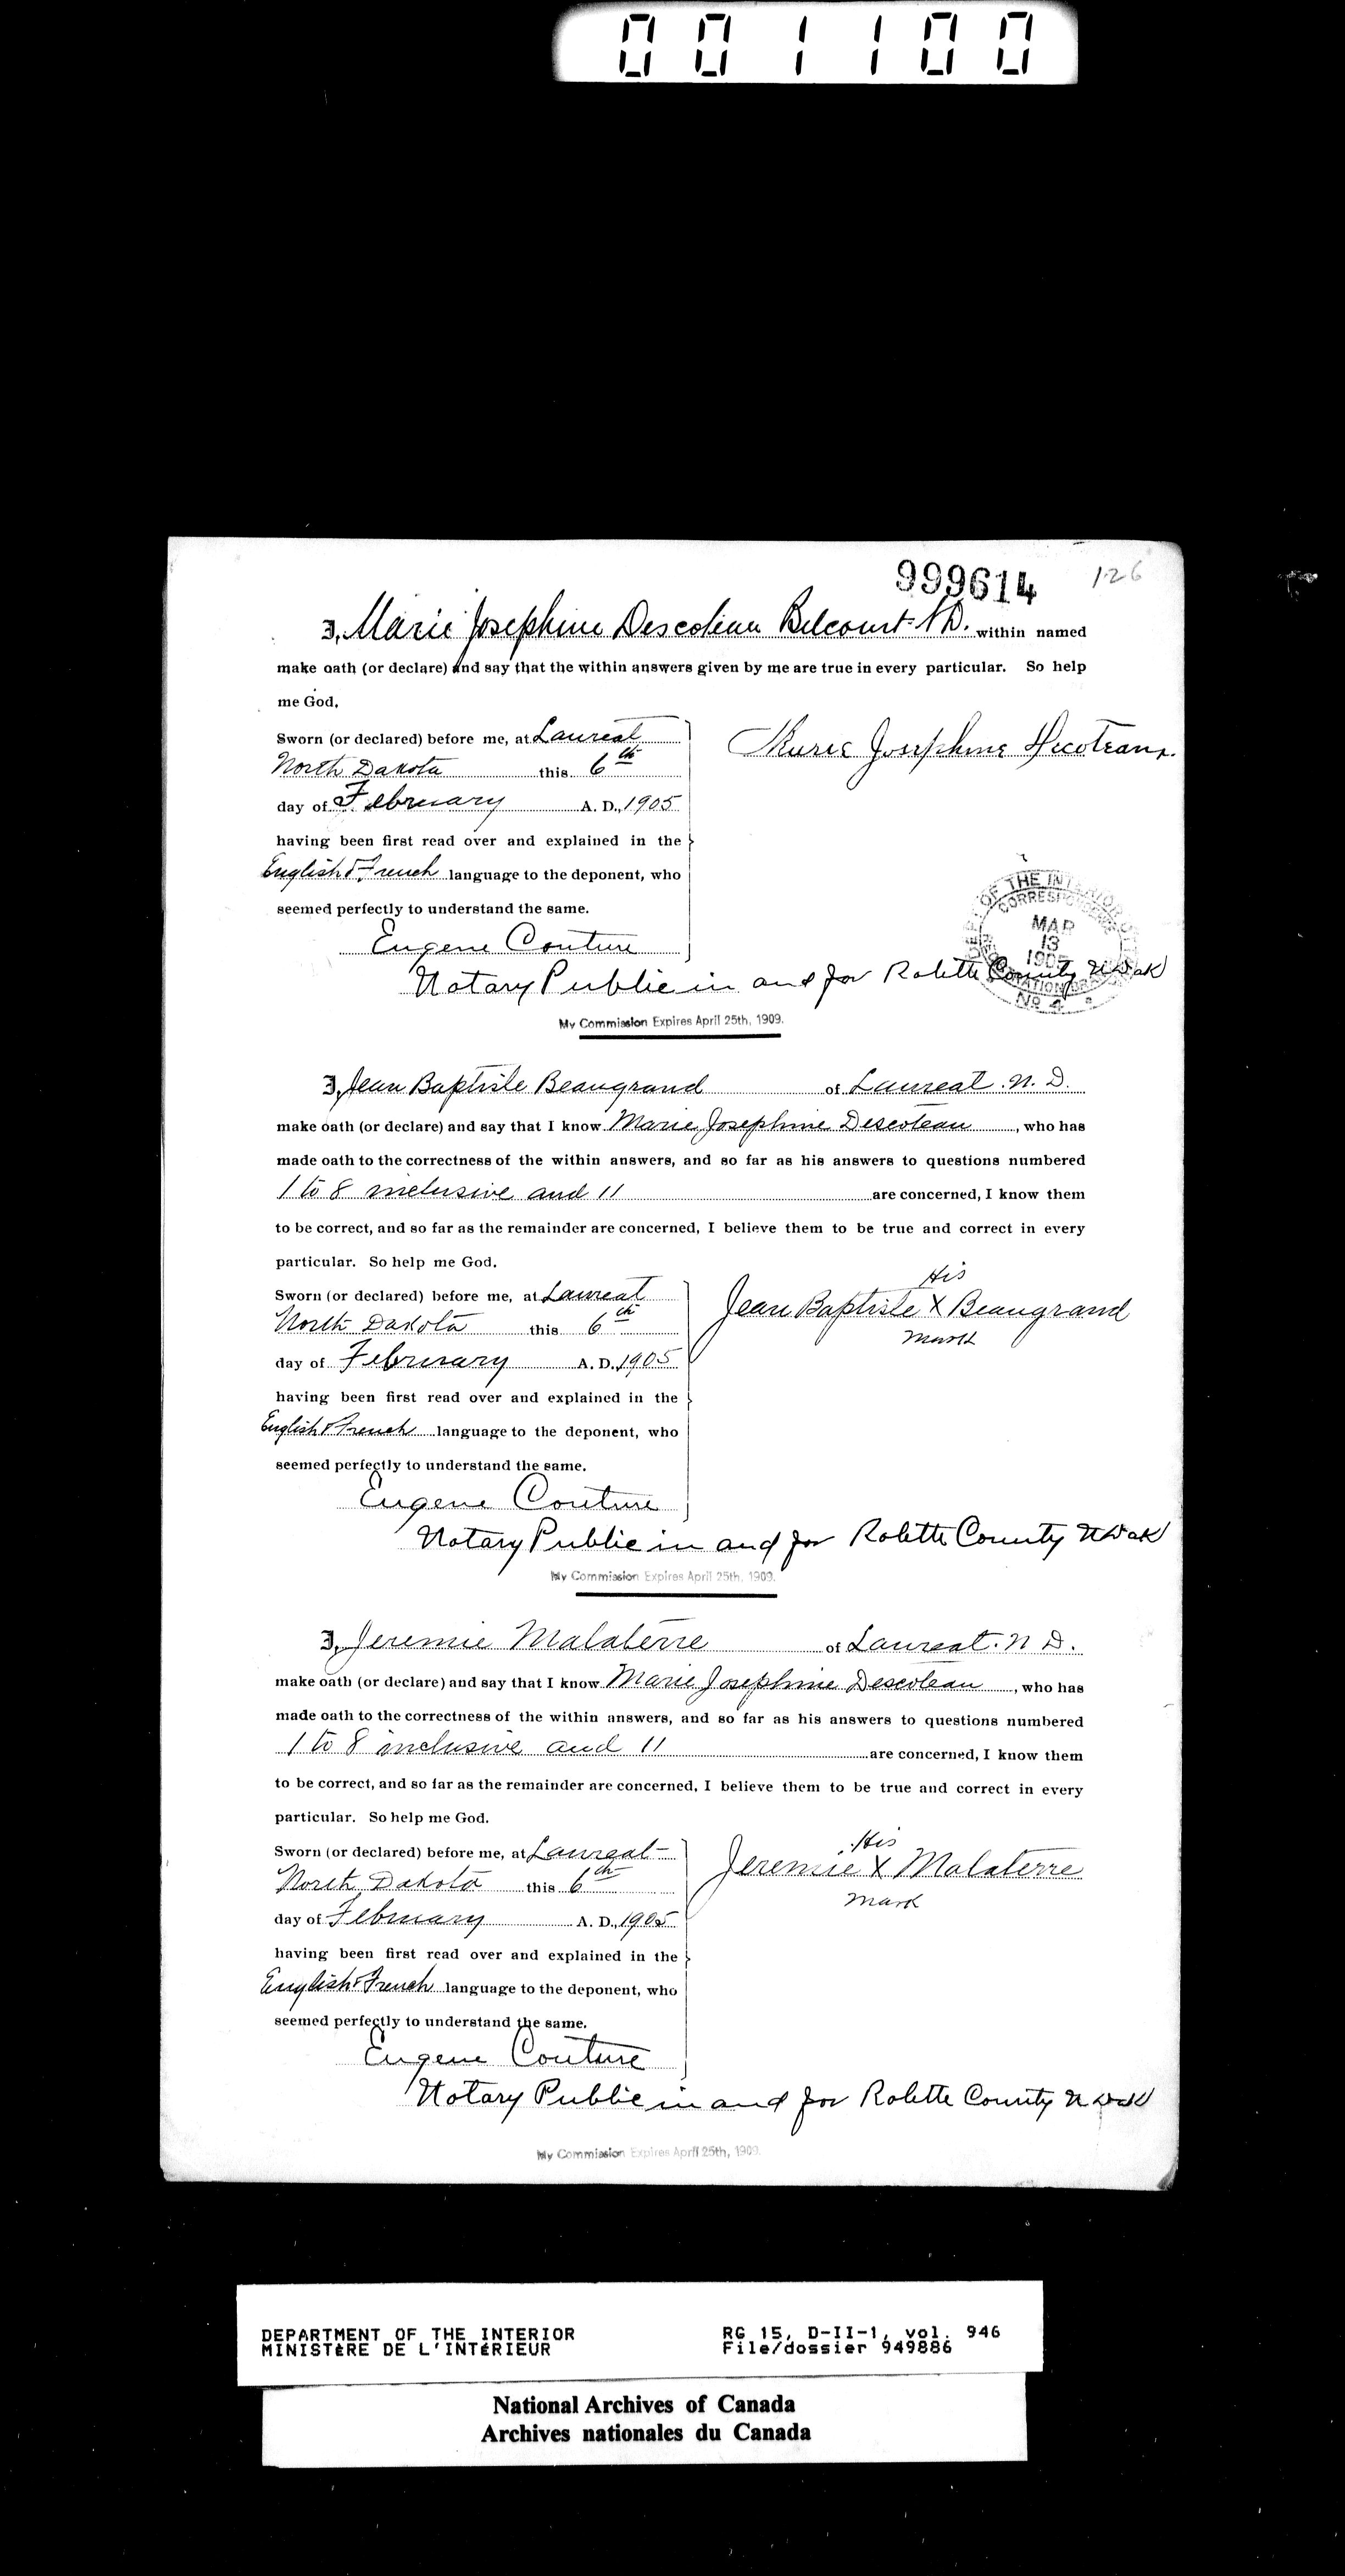 001100
999614 126
I, Marie Josephine Descoteau Belcourt N.D. within named
make oath (or declare) and say that the within answers given by me are true in every particular. So help
me God.
Sworn (or declared) before me, at Laureat
North Dakota this 6th
day of February A. D., 1905
having been first read over and explained in the
English & French language to the deponent, who
seemed perfectly to understand the same.
Marie Josephine Decoteau.
Eugene Couture
Notary Public in and for Rolette County N Dak
DEPT OF THE INTERIOR
CORRESPONDENCE
MAR
13
1905
REGISTRATION BRANCH
No 4
My Commission Expires April 25th, 1909.
I, Jean Baptiste Beaugrand of Laureat N. D.
make oath (or declare) and say that I know Marie Josephine Descoteau, who has
made oath to the correctness of the within answers, and so far as his answers to questions numbered
1 to 8 inclusive and 11 are concerned, I know them
to be correct, and so far as the remainder are concerned, I believe them to be true and correct in every
particular. So help me God.
Sworn (or declared) before me, at Laureat
North Dakota this 6th
day of February A. D. 1905
having been first read over and explained in the
English & French language to the deponent, who
seemed perfectly to understand the same.
His
Jean Baptiste X Beaugrand
mark
Eugene Couture
Notary Public in and for Rolette County N Dak
My Commission Expires April 25th, 1909.
I, Jeremie Malaterre of Laureat N D.
make oath (or declare) and say that I know Marie Josephine Descoteau, who has
made oath to the correctness of the within answers, and so far as his answers to questions numbered
1 to 8 inclusive and 11 are concerned, I know them
to be correct, and so far as the remainder are concerned, I believe them to be true and correct in every
particular. So help me God.
Sworn (or declared) before me, at Laureat
North Dakota this 6th
day of February A. D., 1905
having been first read over and explained in the
English & French language to the deponent, who
seemed perfectly to understand the same.
His
Jeremie X Malaterre
mark
Eugene Couture
Notary Public in and for Rolette County N Dak
My Commission Expires April 25th, 1909.
DEPARTMENT OF THE INTERIOR RG 15, D-II-1, vol. 946
MINISTÈRE DE L'INTÉRIEUR File/dossier 949886
National Archives of Canada
Archives nationales du Canada